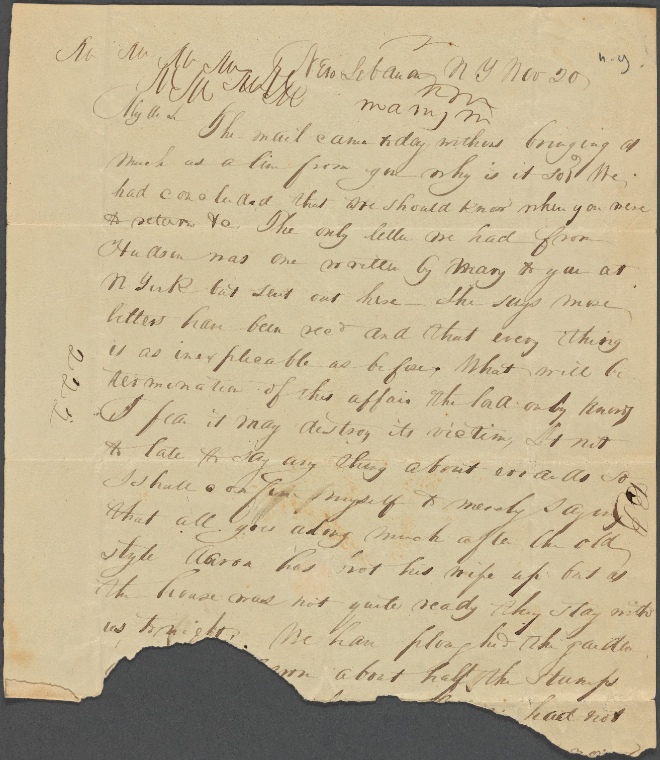 n-y
New Lebanon N Y Nov 20
mamy m
The mail came to day without bringing as
much as a line from you why is it so? We
had concluded that we should know when you were
to return &c. The only letter we had from
Hudson was one written by Mary to you at
N York but sent out here — She says more
letters have been recd and that every thing
is as inexplicable as before. What will be
termination of this affair the Lord only knows
I fear it may destroy its victim. Is it not
to late to say any thing about errands so
I shall confine myself to merely saying
that all goes along much after the old
style Aaron has got his wife up but as
the house was not quite ready they stay with
us to night. We have ploughed the garden
about half the stumps
had not
222